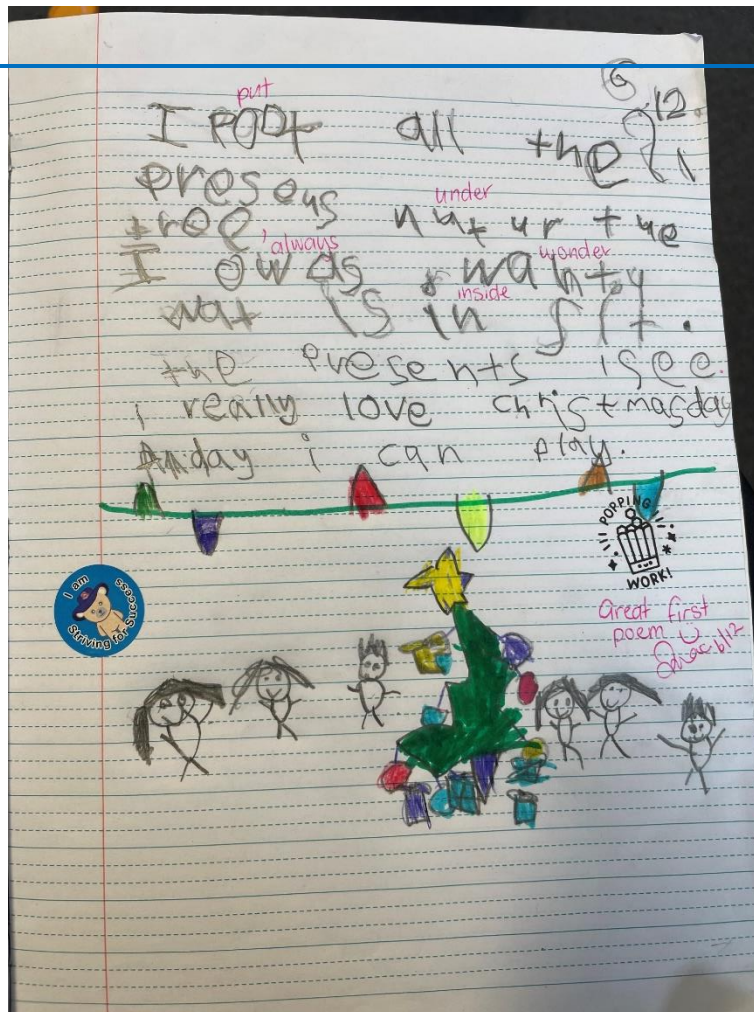 6.12.21
put
I POOt all the
preseus
under
tree, nutur the
always wonder
I owas wanty
inside
wat is in fit.
the presents isee.
i really love christmasday
Anday i can play.
POPPING
WORK!
I am
Striving for Success
Great first
poem
6/12